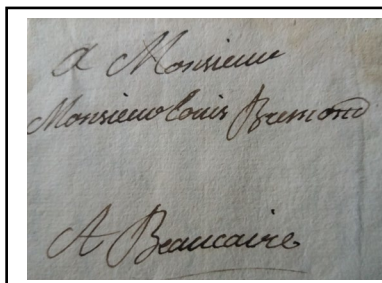 A Monsieur
Monsieur Louis Bremond
A Beaucaire